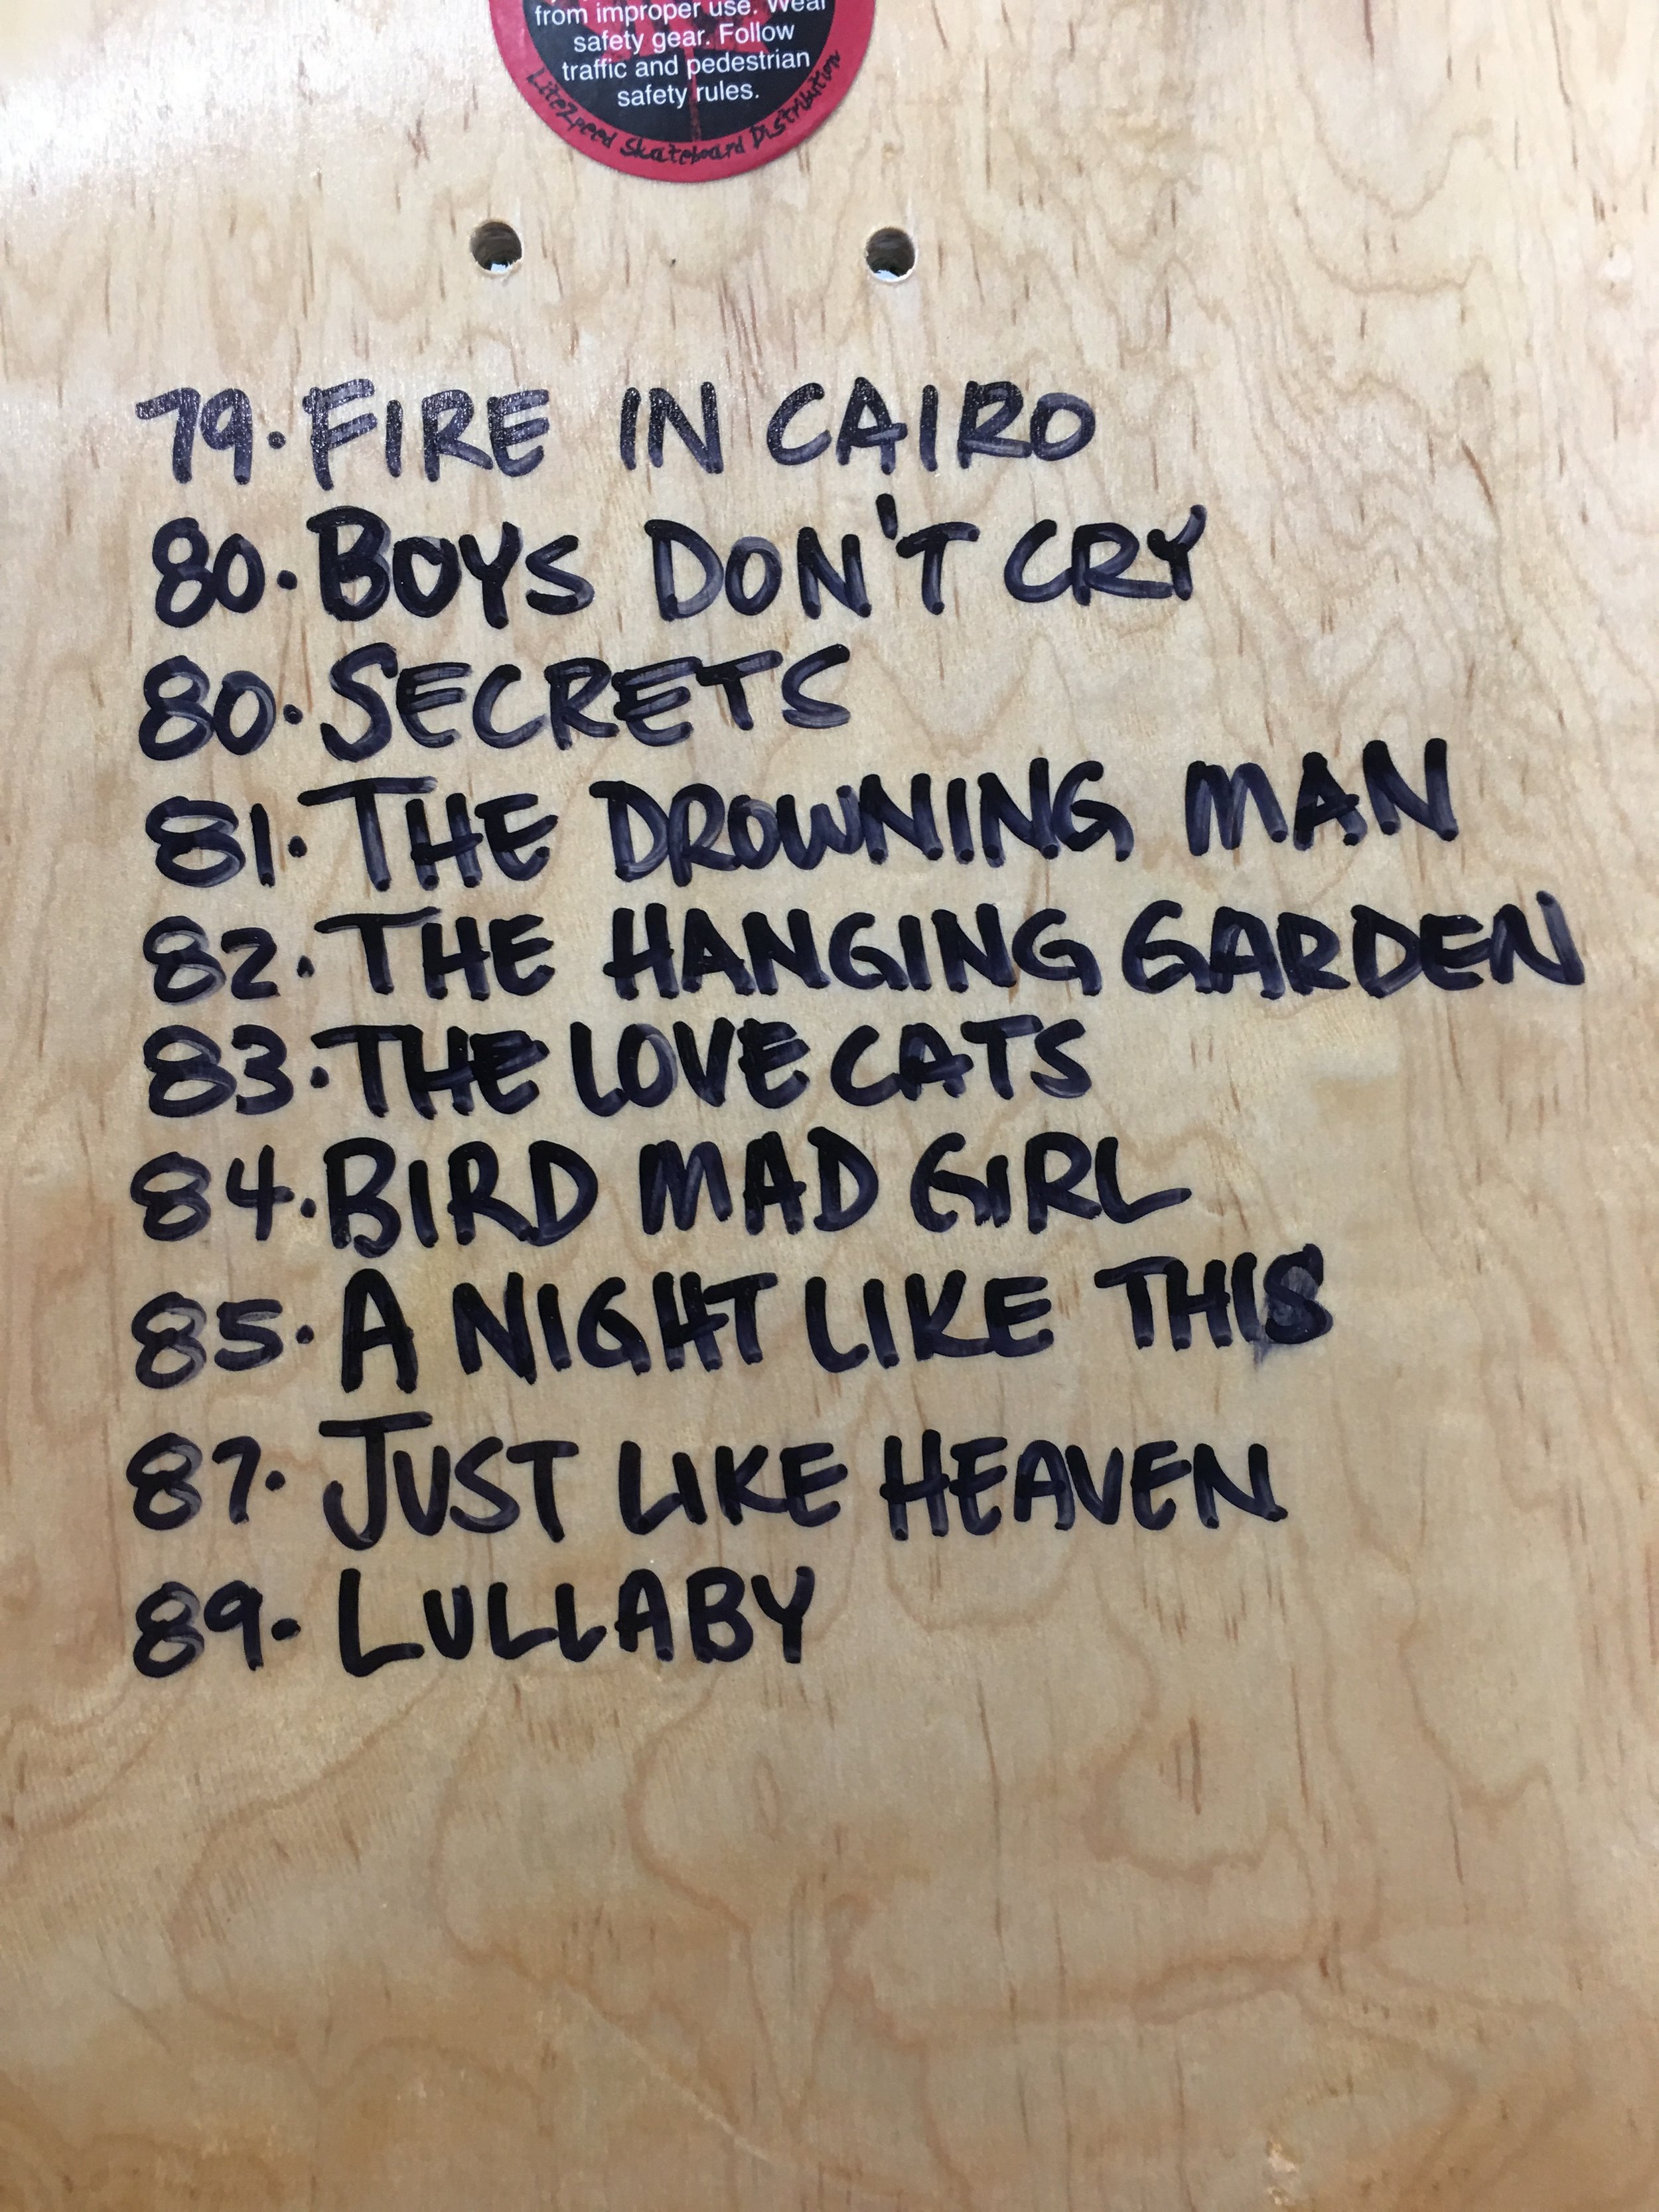 from improper use. Wear
safety gear. Follow
traffic and pedestrian
safety rules.
LiteZpeed Skateboard Distribution
79. FIRE IN CAIRO
80. BOYS DON'T CRY
80. SECRETS
81. THE DROWNING MAN
82. THE HANGING GARDEN
83. THE LOVE CATS
84. BIRD MAD GIRL
85. A NIGHT LIKE THIS
87. JUST LIKE HEAVEN
89. LULLABY